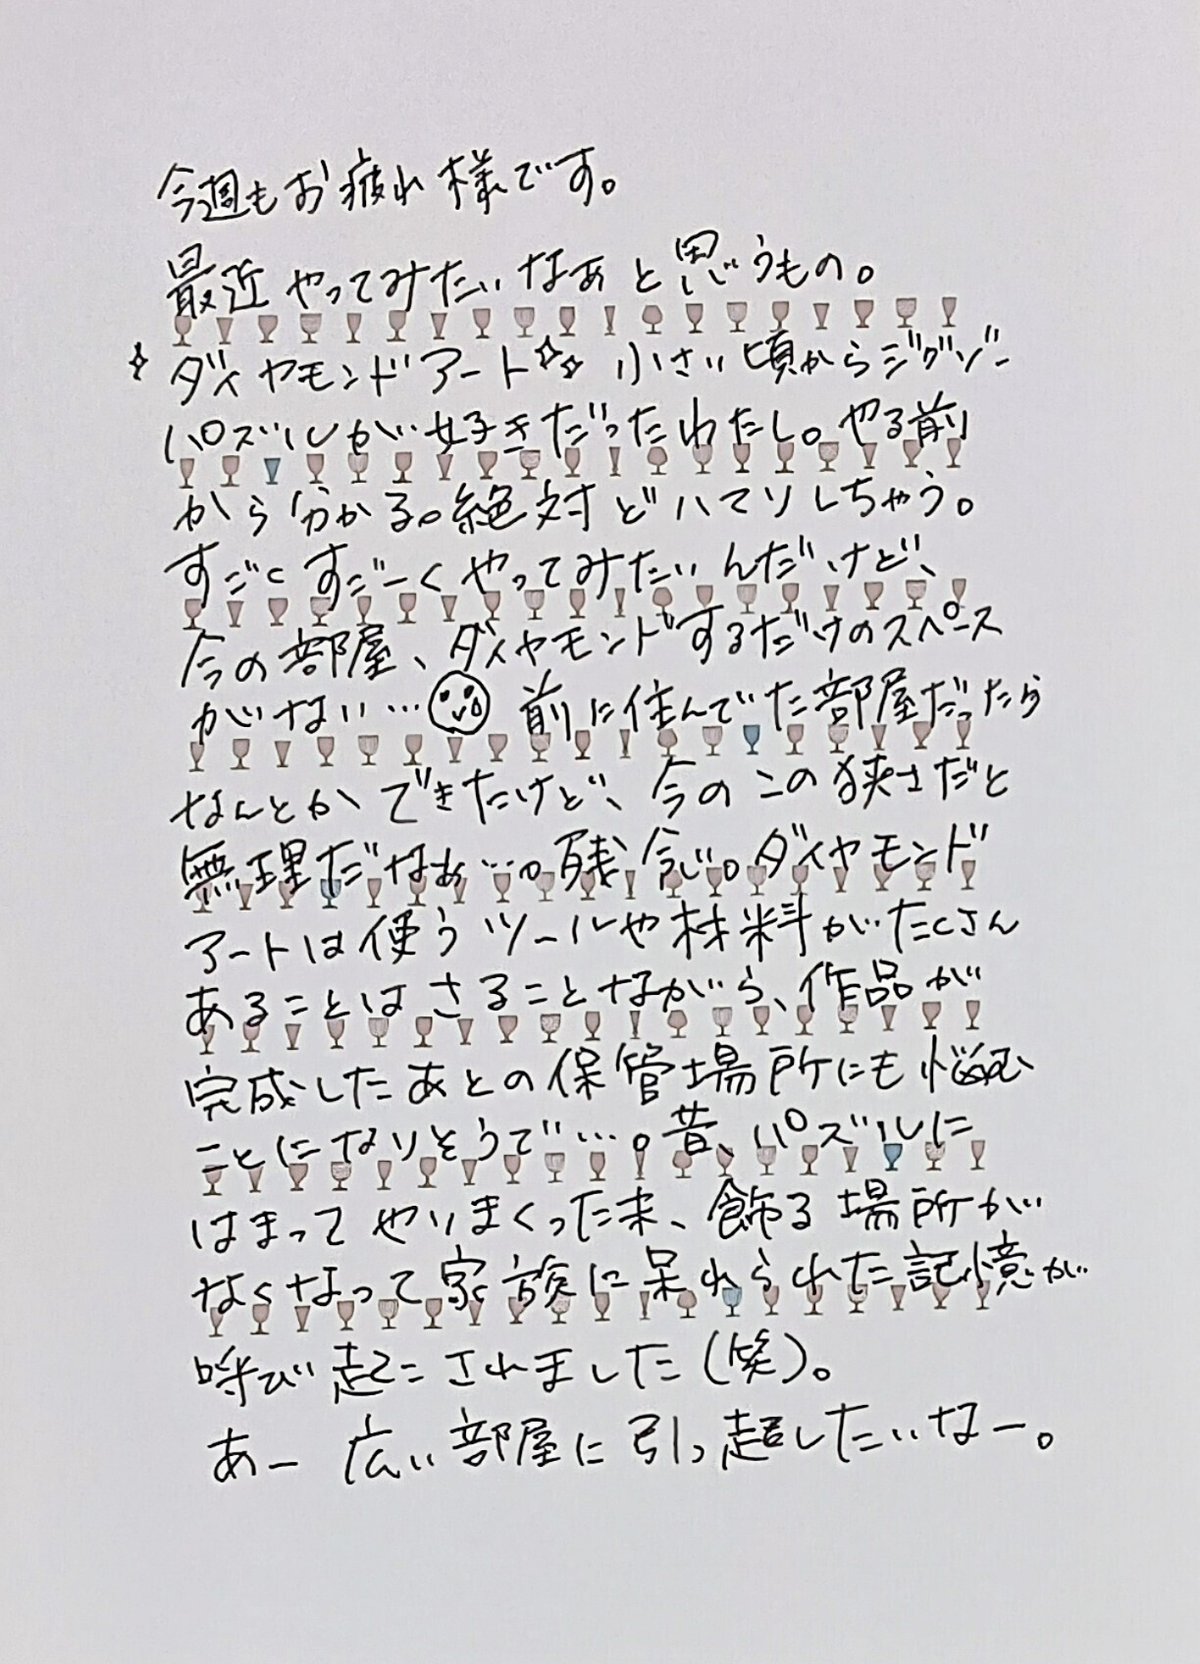 今週もお疲れ様です。
最近やってみたいなぁと思うもの。
☆ダイヤモンドアート☆☆ 小さい頃からジグソー
パズルが好きだったわたし。やる前
から分かる。絶対どハマりしちゃう。
すごくすごーくやってみたいんだけど、
今の部屋、ダイヤモンドするだけのスペース
がない… 前に住んでた部屋だったら
なんとかできたけど、今のこの狭さだと
無理だなぁ…。残念。ダイヤモンド
アートは使うツールや材料がたくさん
あることはさることながら、作品が
完成したあとの保管場所にも悩む
ことになりそうで…。昔、パズルに
はまってやりまくった末、飾る場所が
なくなって家族に呆れられた記憶が
呼び起こされました(笑)。
あー広い部屋に引っ越したいなー。